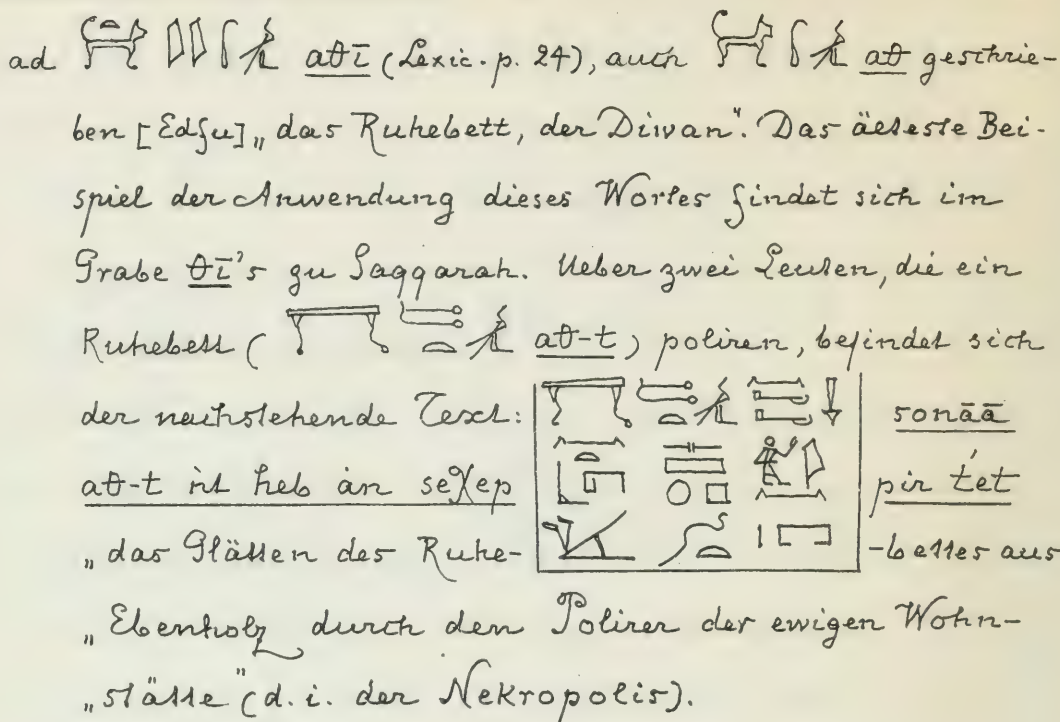 ad aθī (Lexic. p. 24), auch aθ geschrie-
ben [Edfu] „das Ruhebett, der Divan". Das älteste Bei-
spiel der Anwendung dieses Wortes findet sich im
Grabe θī's zu Saqqarah. Ueber zwei Leuten, die ein
Ruhebett ( aθ-t) poliren, befindet sich
der nachstehende Text: sonāā
aθ-t nt heb ȧn seχep pir t́et
„das Glätten des Ruhe- -bettes aus
„Ebenholz durch den Polirer der ewigen Wohn-
„stätte" (d. i. der Nekropolis).